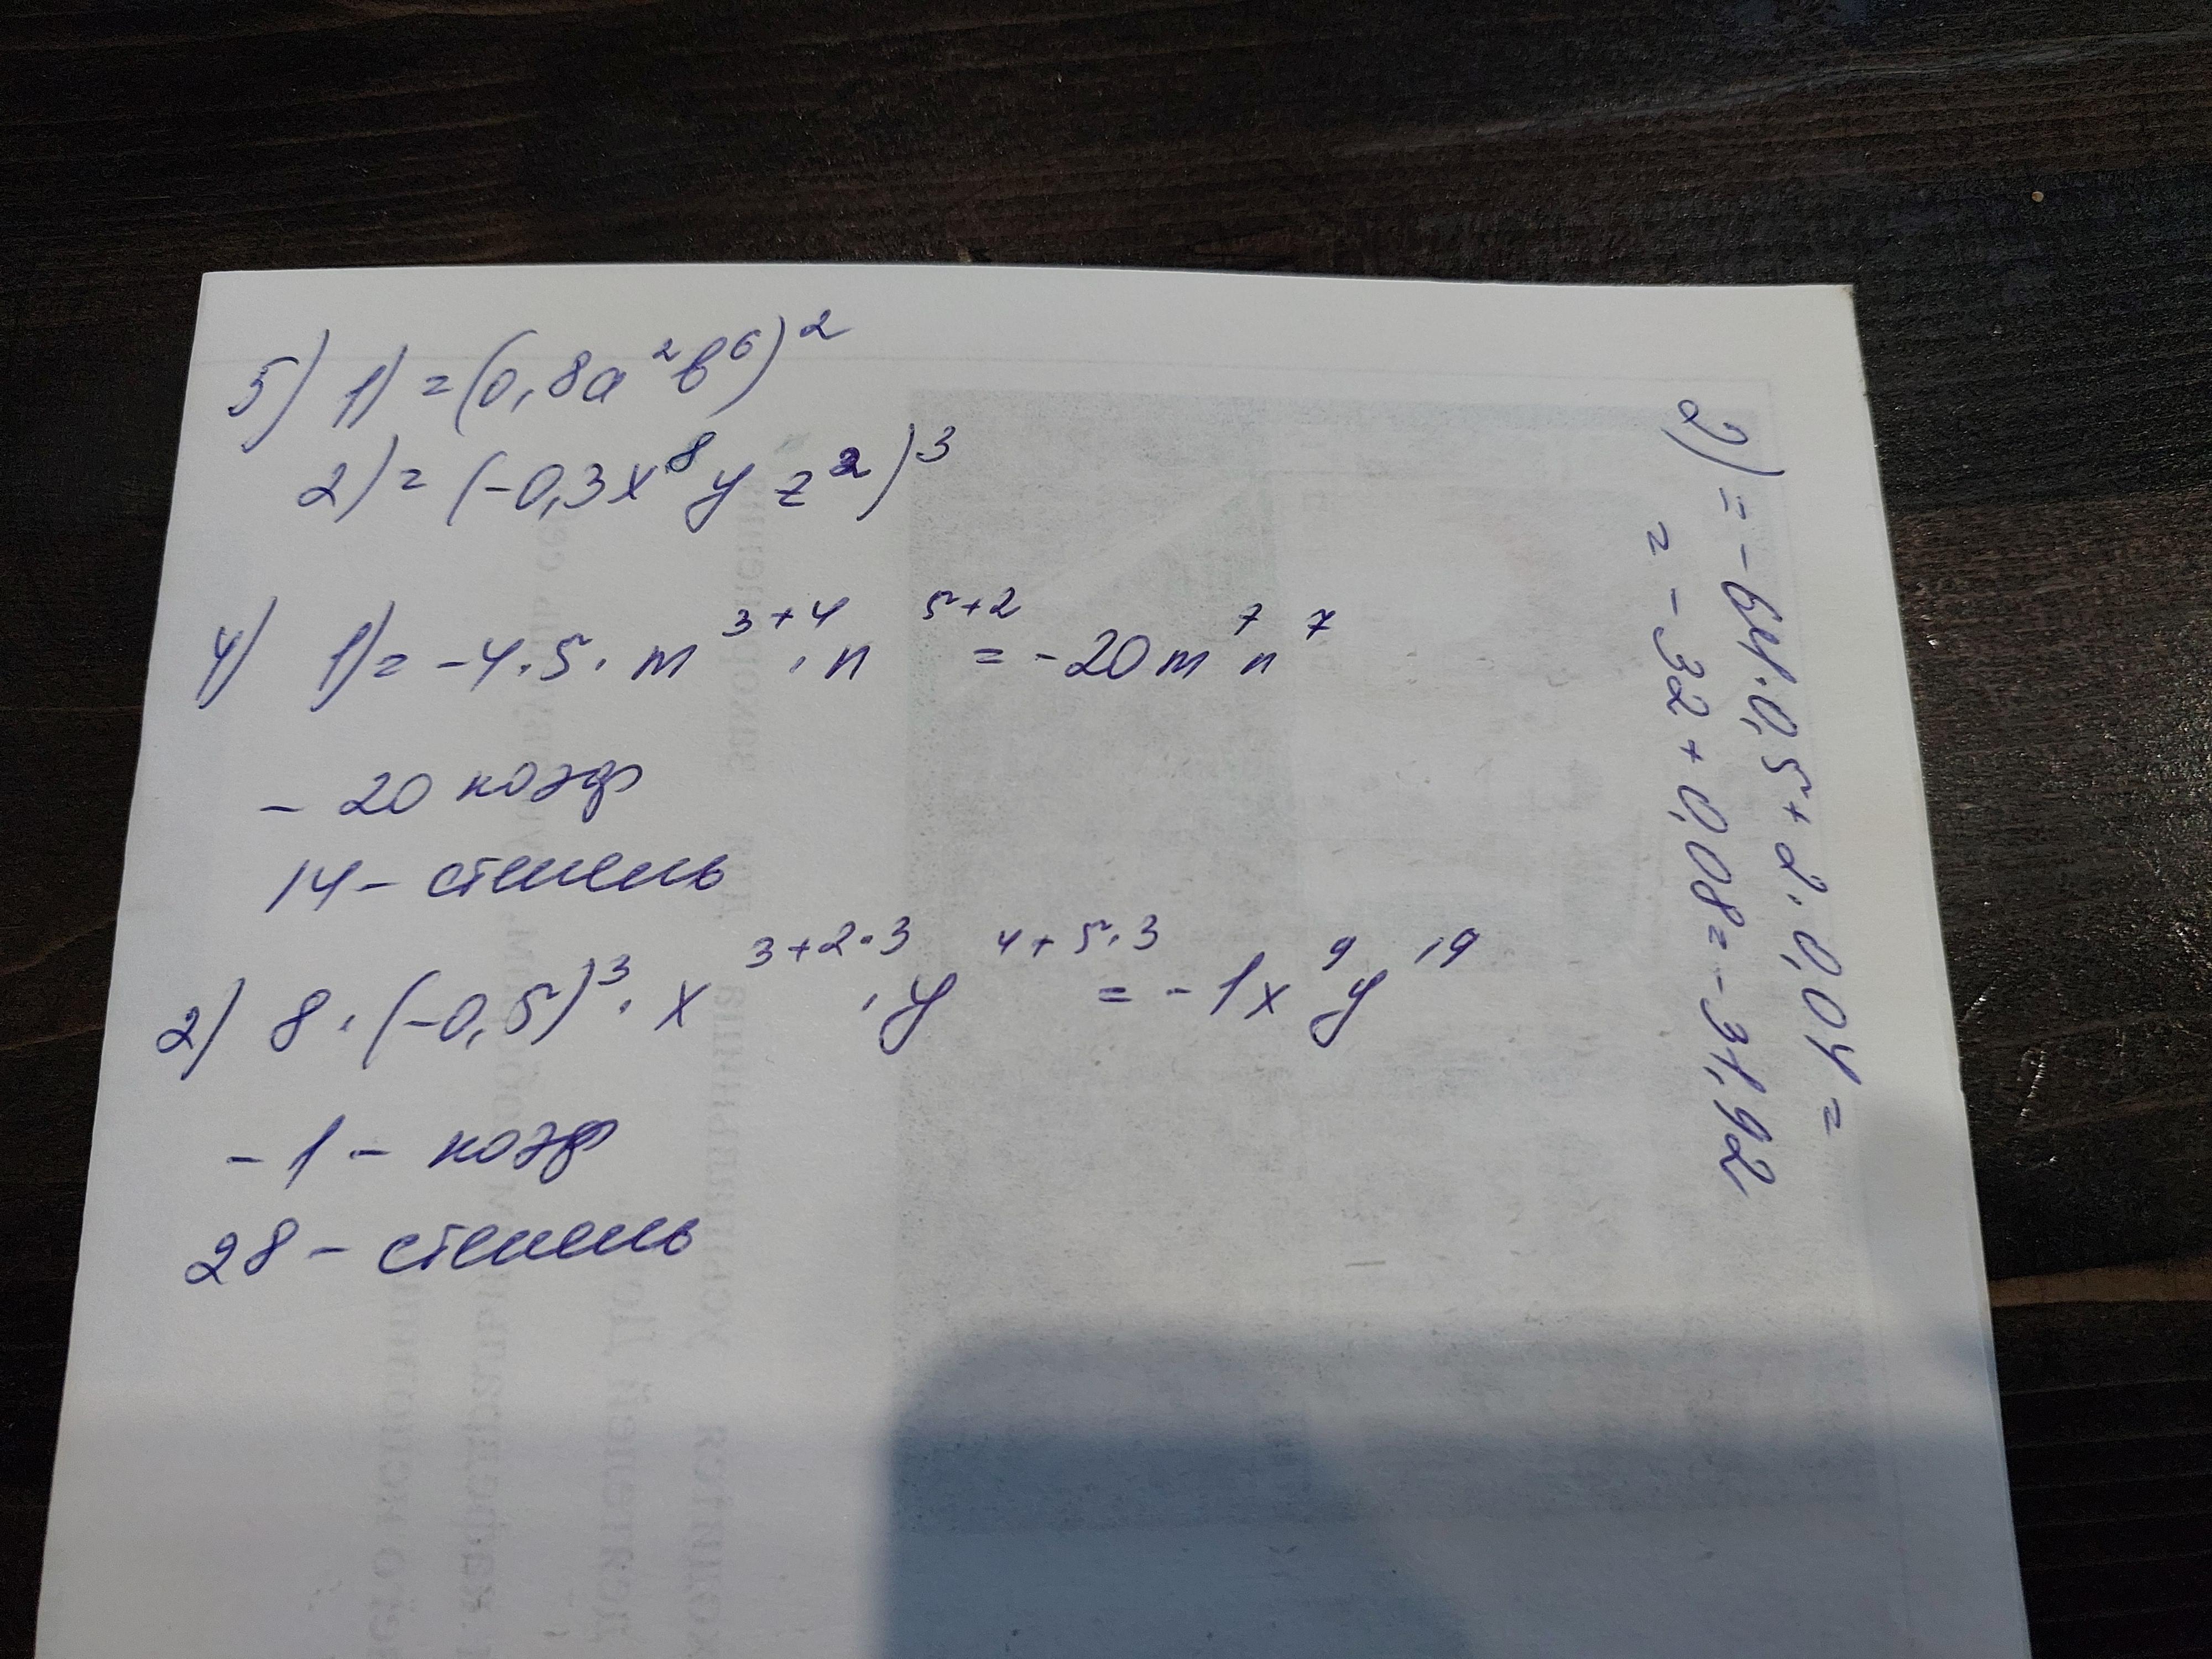 5) 1) = (0,8a²b⁶)²
2) = (-0,3x⁸yz²)³
4) 1) = -4·5·m³⁺⁴·n⁵⁺² = -20m⁷n⁷
- 20 коэф
14 - степень
2) 8·(-0,5)³·x³⁺²·³·y⁴⁺⁵·³ = -1x⁹y¹⁹
- 1 - коэф
28 - степень
2) = -64·0,5+2·0,04=
= -32+0,08=-31,92